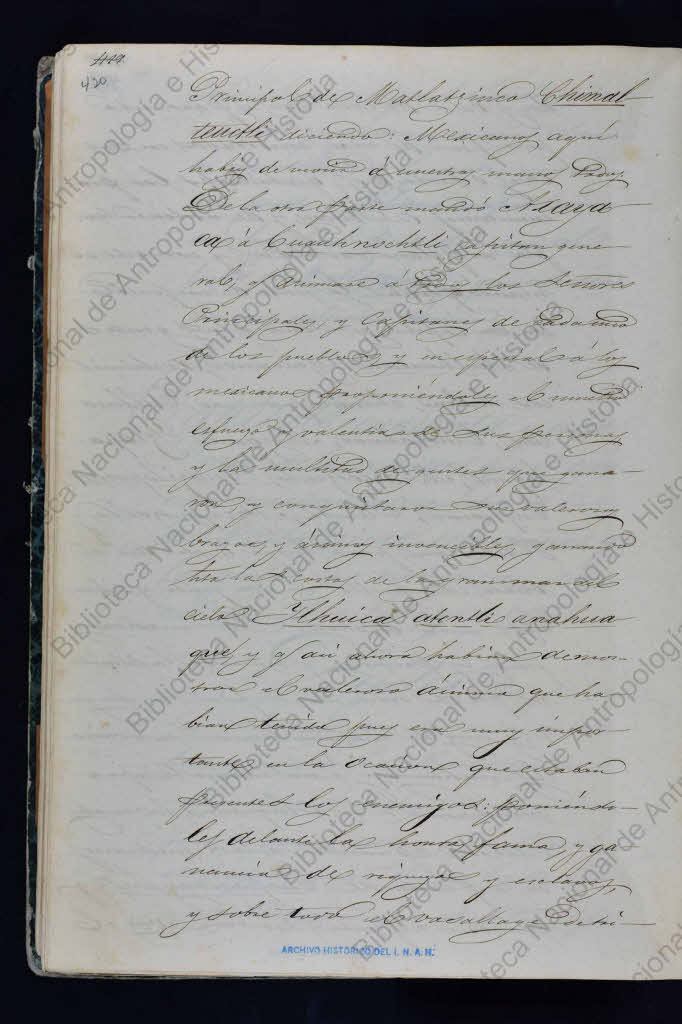 419
420
Principal de Matlatzinco Chimal-
teuctli diciendo: Mexicanos aquí
habeis de morir á nuestras manos todos
De la otra parte mandó Axaya
ca á Cuauhnochtli capitan gene-
ral, q animase á todos los Señores
Principales, y Capitanes de cada uno
de los pueblos y en especial á los
mexicanos proponiéndoles el mucho
esfuerzo y valentia de sus personas
y la multitud de gentes que gana-
ron, y conquistaron sus valerosos
brazos, y ánimos invencibles, ganando
hta las costas de la gran mar del
cielo Ilhuica atentli anahua
que, y q asi ahora habian demos-
trar el valeroso ánimo que ha
bian tenido pues era muy impor-
tante en la ocasion que estaban
presentes los enemigos: poniéndo-
les delante la honra, fama, y ga
nancia de riquezas y esclavos,
y sobre todo el vasallage de tri-
ARCHIVO HISTÓRICO DEL I. N. A. H.
Biblioteca Nacional de Antropología e Historia